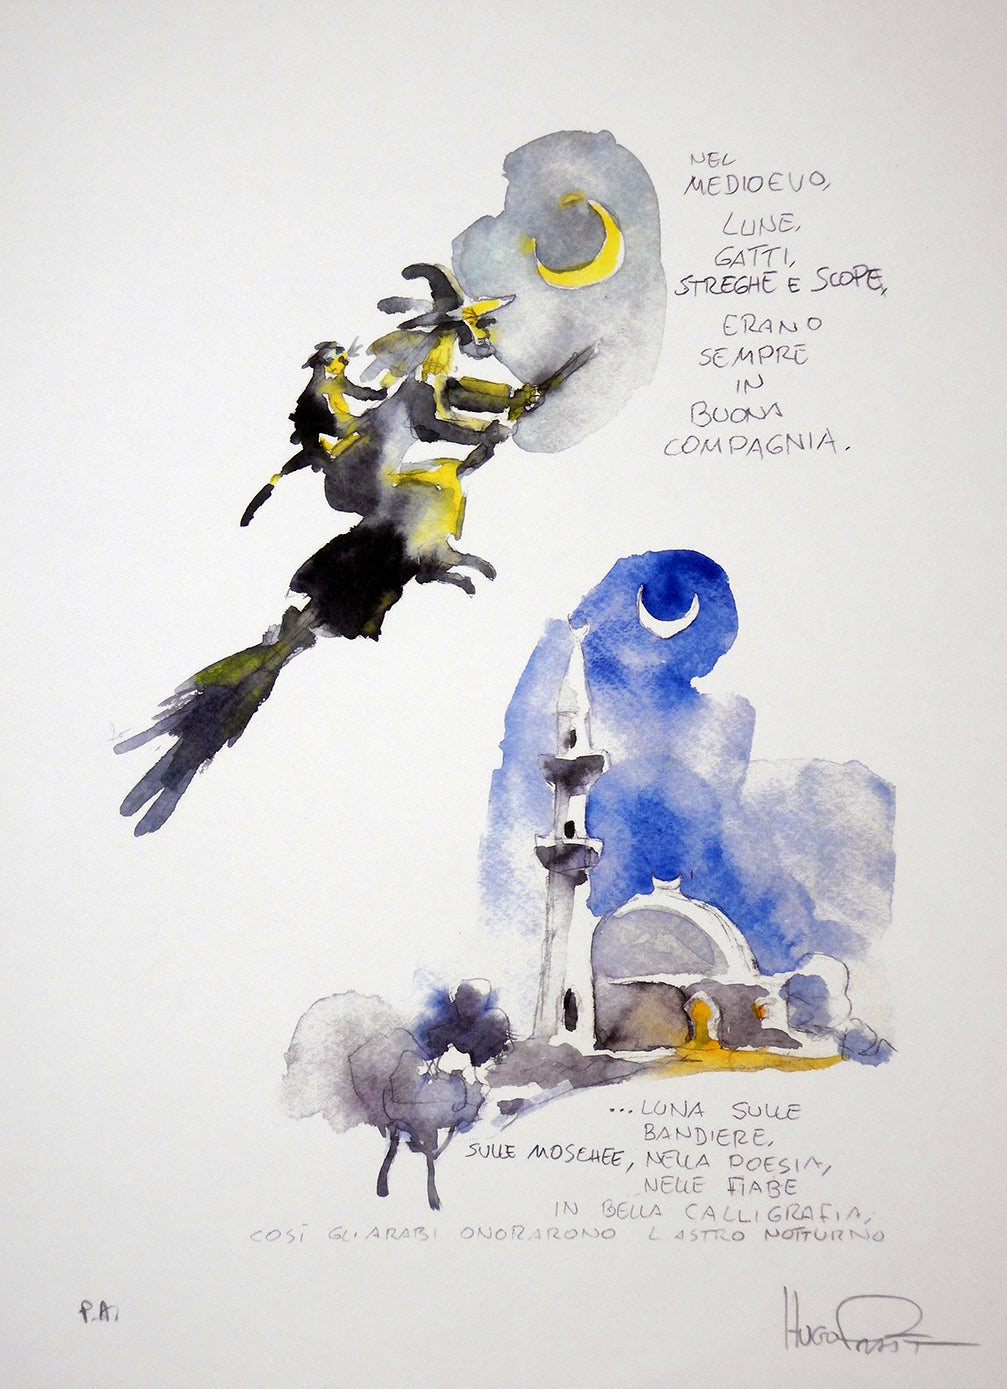 NEL
MEDIOEVO,
LUNE,
GATTI,
STREGHE E SCOPE,
ERANO
SEMPRE
IN
BUONA
COMPAGNIA.
...LUNA SULLE
BANDIERE,
SULLE MOSCHEE, NELLA POESIA,
NELLE FIABE
IN BELLA CALLIGRAFIA,
COSÌ GLI ARABI ONORARONO L ASTRO NOTTURNO
P.A.
HUGO PRATT